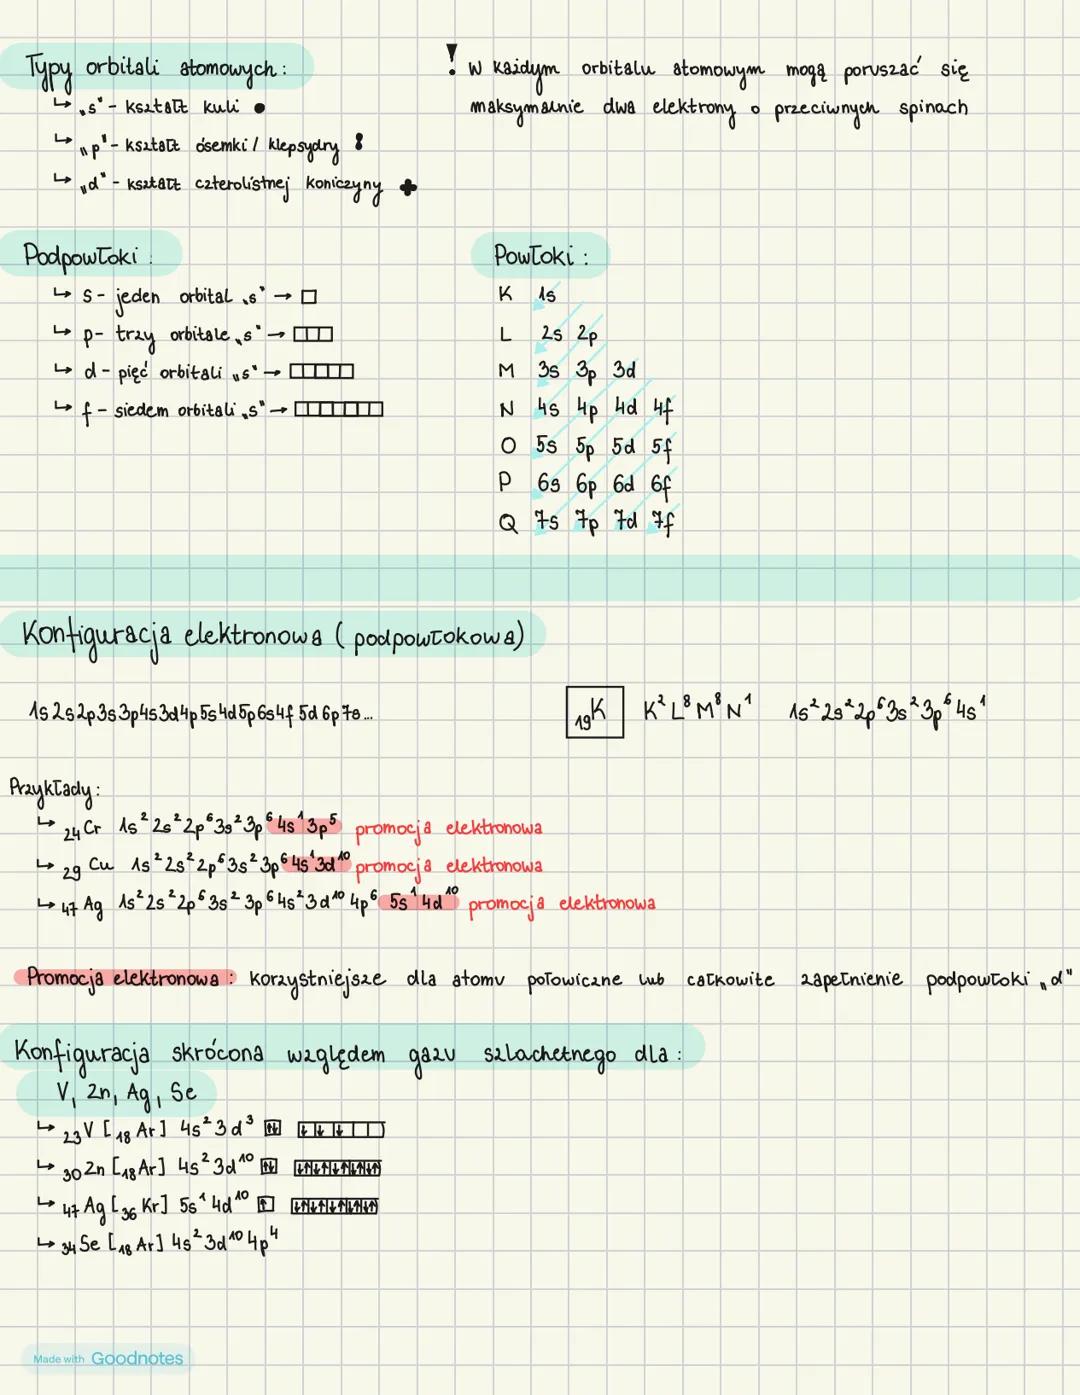 Typy orbitali atomowych:
↳ „s" - kształt kuli
↳ „p" - kształt ósemki / klepsydry
↳ „d" - kształt czterolistnej koniczyny
! W każdym orbitalu atomowym mogą poruszać się
maksymalnie dwa elektrony o przeciwnych spinach
Podpowłoki:
↳ s - jeden orbital „s" →
↳ p - trzy orbitale „s" →
↳ d - pięć orbitali „s" →
↳ f - siedem orbitali „s" →
Powłoki:
K 1s
L 2s 2p
M 3s 3p 3d
N 4s 4p 4d 4f
O 5s 5p 5d 5f
P 6s 6p 6d 6f
Q 7s 7p 7d 7f
Konfiguracja elektronowa (podpowłokowa)
1s 2s 2p 3s 3p 4s 3d 4p 5s 4d 5p 6s 4f 5d 6p 7s...
₁₉K K² L⁸ M⁸ N¹ 1s² 2s² 2p⁶ 3s² 3p⁶ 4s¹
Przykłady:
↳ ₂₄Cr 1s² 2s² 2p⁶ 3s² 3p⁶ 4s¹ 3p⁵ promocja elektronowa
↳ ₂₉Cu 1s² 2s² 2p⁶ 3s² 3p⁶ 4s¹ 3d¹⁰ promocja elektronowa
↳ ₄₇Ag 1s² 2s² 2p⁶ 3s² 3p⁶ 4s² 3d¹⁰ 4p⁶ 5s¹ 4d¹⁰ promocja elektronowa
Promocja elektronowa: korzystniejsze dla atomu połowiczne lub całkowite zapełnienie podpowłoki „d"
Konfiguracja skrócona względem gazu szlachetnego dla:
V, Zn, Ag, Se
↳ ₂₃V [₁₈Ar] 4s² 3d³ ↑↓ ↓ ↓ ↓
↳ ₃₀Zn [₁₈Ar] 4s² 3d¹⁰ ↑↓ ↓↑ ↓↑ ↓↑ ↓↑ ↓↑
↳ ₄₇Ag [₃₆Kr] 5s¹ 4d¹⁰ ↑ ↓↑ ↓↑ ↓↑ ↓↑ ↓↑
↳ ₃₄Se [₁₈Ar] 4s² 3d¹⁰ 4p⁴
Made with Goodnotes